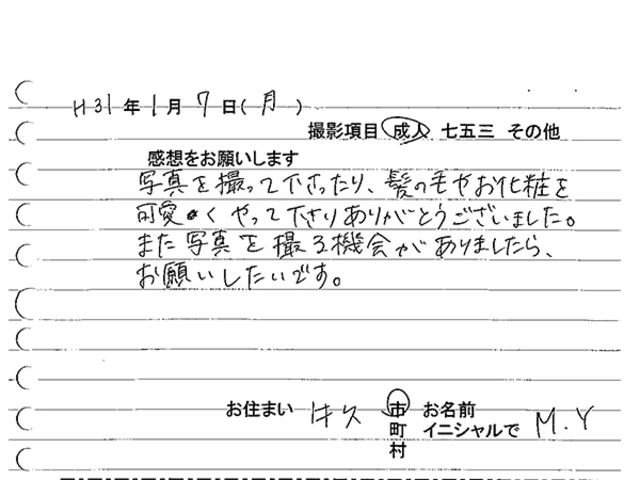 H31年1月7日(月)
撮影項目 成人 七五三 その他
感想をお願いします
写真を撮って下さったり、髪の毛やお化粧を
可愛くやって下さりありがとうございました。
また写真を撮る機会がありましたら、
お願いしたいです。
お住まい 市町村 お名前 イニシャルで M.Y